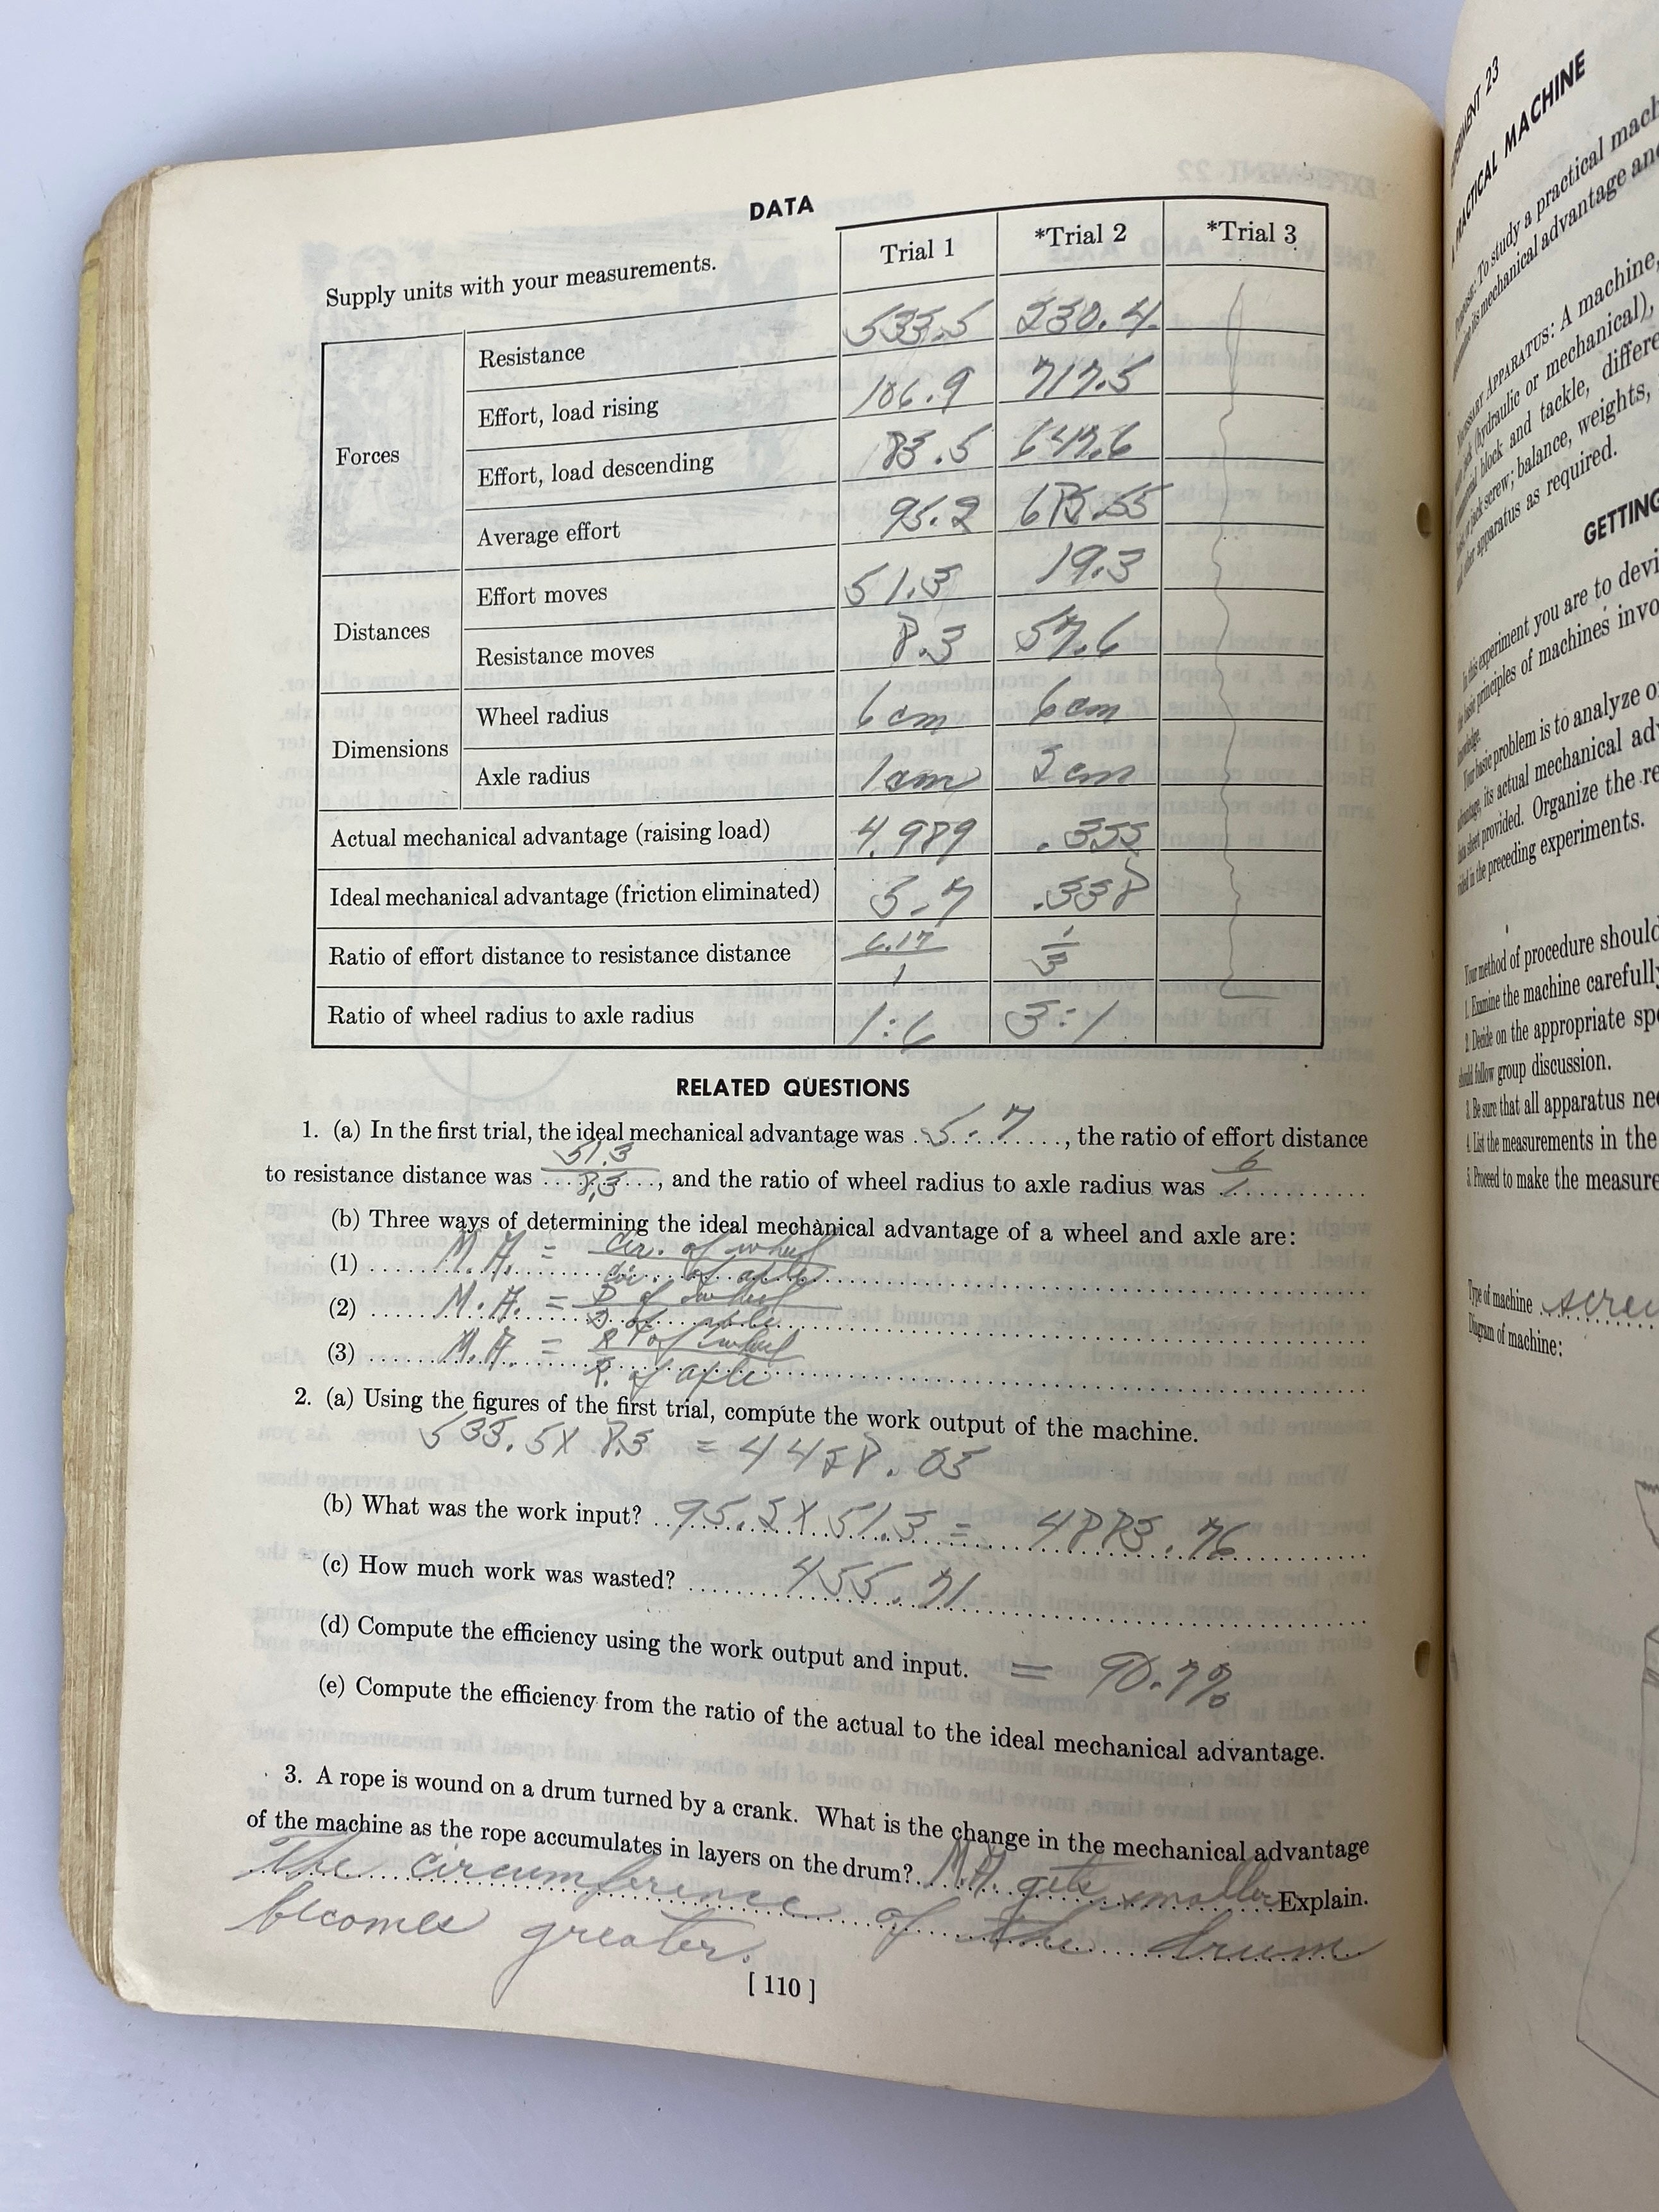 DATA
Supply units with your measurements.
Trial 1 *Trial 2 *Trial 3
Forces
Resistance 533.5 230.4
Effort, load rising 106.9 717.5
Effort, load descending 83.5 647.6
Average effort 95.2
Distances
Effort moves 51.3 19.3
Resistance moves 8.3 57.6
Dimensions
Wheel radius 6 cm 6 cm
Axle radius 1 cm 2 cm
Actual mechanical advantage (raising load) 4.989
Ideal mechanical advantage (friction eliminated) 5.7 .338
Ratio of effort distance to resistance distance 6.17/1 1/3
Ratio of wheel radius to axle radius 1:6 3:1
RELATED QUESTIONS
1. (a) In the first trial, the ideal mechanical advantage was 5.7, the ratio of effort distance
to resistance distance was 51.3/8.3, and the ratio of wheel radius to axle radius was 6/1
(b) Three ways of determining the ideal mechanical advantage of a wheel and axle are:
(1) M.A. = cir. of wheel / cir. of axle
(2) M.A. = D of wheel / D. of axle
(3) M.A. = R of wheel / R. of axle
2. (a) Using the figures of the first trial, compute the work output of the machine.
533.5 X 8.3 = 4428.05
(b) What was the work input? 95.2 X 51.3 = 4883.76
(c) How much work was wasted? 455.71
(d) Compute the efficiency using the work output and input. = 90.7%
(e) Compute the efficiency from the ratio of the actual to the ideal mechanical advantage.
3. A rope is wound on a drum turned by a crank. What is the change in the mechanical advantage
of the machine as the rope accumulates in layers on the drum? M.A. gets smaller Explain.
The circumference of the drum
becomes greater.
[ 110 ]
EXPERIMENT 23
A PRACTICAL MACHINE
Purpose: To study a practical
mechanical advantage
APPARATUS: A machine,
(hydraulic or mechanical),
block and tackle,
jack screw; balance, weights,
apparatus as required.
GETTING
In this experiment you are to
basic principles of machines
knowledge.
Your basic problem is to analyze
advantage, its actual mechanical
data sheet provided. Organize the
in the preceding experiments.
Your method of procedure should
1. Examine the machine
2. Decide on the appropriate
should follow group discussion.
3. Be sure that all apparatus
4. List the measurements in the
5. Proceed to make the
Type of machine
Diagram of machine: